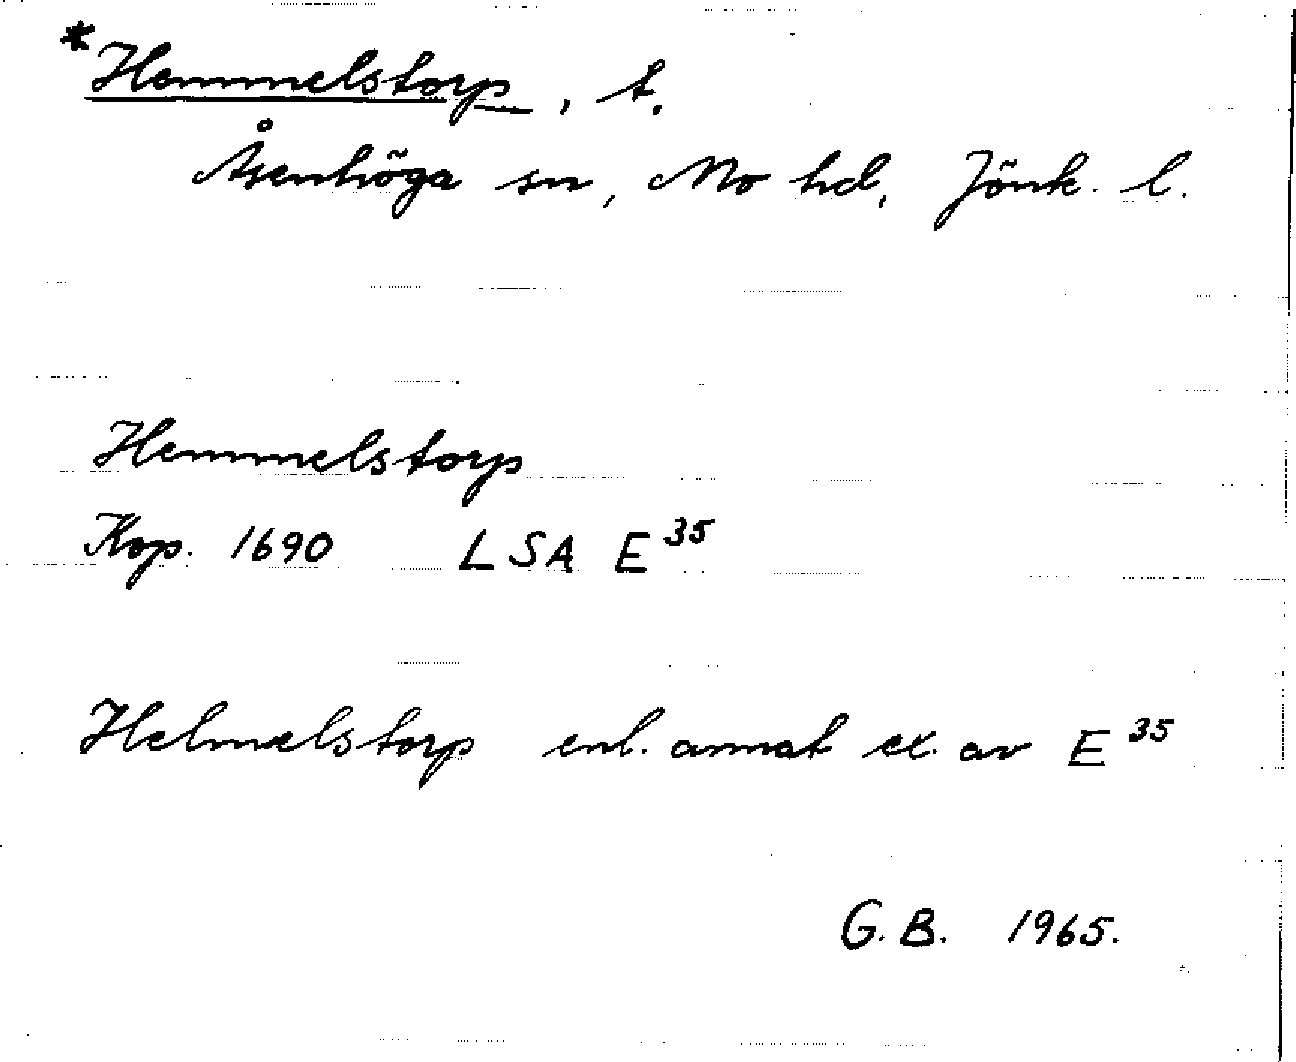 *Hemmelstorp, t.
Åsenhöga sn, Mo hd, Jönk. l.
Hemmelstorp
Kop. 1690 LSA E 35
Helmelstorp enl. annat ex. av E 35
G. B. 1965.